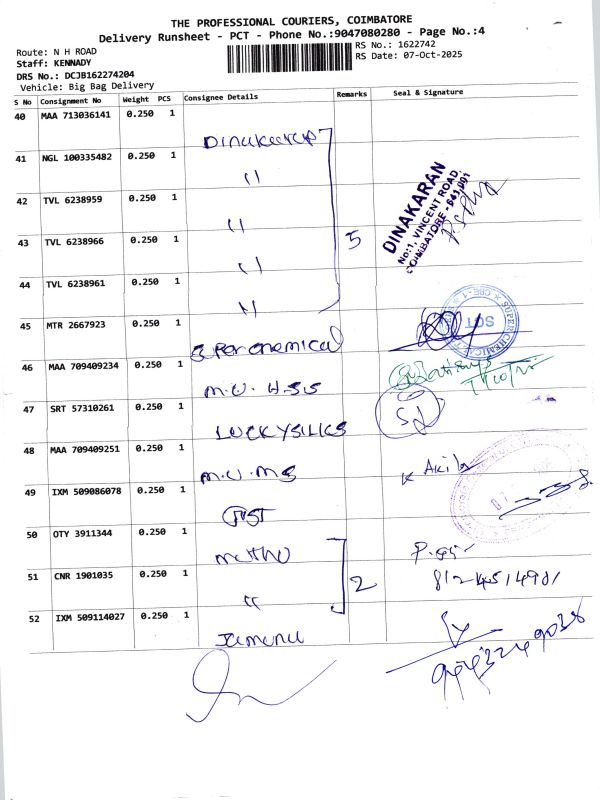 THE PROFESSIONAL COURIERS, COIMBATORE
Delivery Runsheet - PCT - Phone No.:9047080280 - Page No.:4
Route: N H ROAD
RS No.: 1622742
Staff: KENNADY
RS Date: 07-Oct-2025
DRS No.: DCJB162274204
Vehicle: Big Bag Delivery
S No Consignment No Weight PCS Consignee Details Remarks Seal & Signature
40 MAA 713036141 0.250 1
41 NGL 100335482 0.250 1 "
42 TVL 6238959 0.250 1 "
43 TVL 6238966 0.250 1 " 5
44 TVL 6238961 0.250 1 "
DINAKARAN
No:1, VINCENT ROAD,
COIMBATORE - 641 001
45 MTR 2667923 0.250 1 Super chemical
SCT
46 MAA 709409234 0.250 1 M.U. H.S.S
47 SRT 57310261 0.250 1 LUCKYSILKS
48 MAA 709409251 0.250 1 M.U.M.S
Akila
49 IXM 509086078 0.250 1
50 OTY 3911344 0.250 1 Muthu
51 CNR 1901035 0.250 1 " 2
52 IXM 509114027 0.250 1 Jamuna